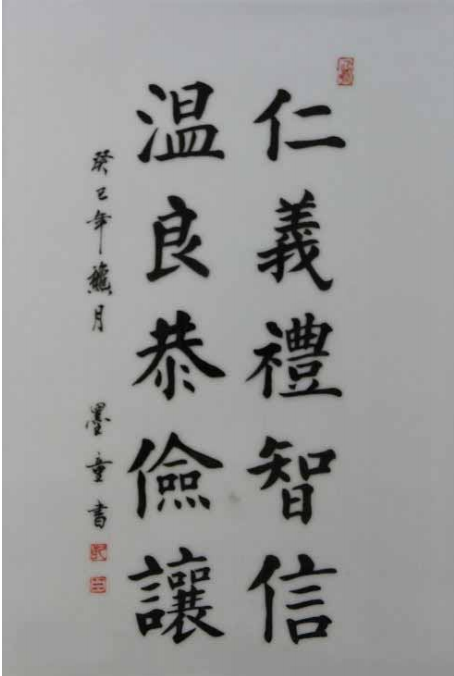 仁義禮智信
温良恭儉讓
癸巳年龝月 墨童書